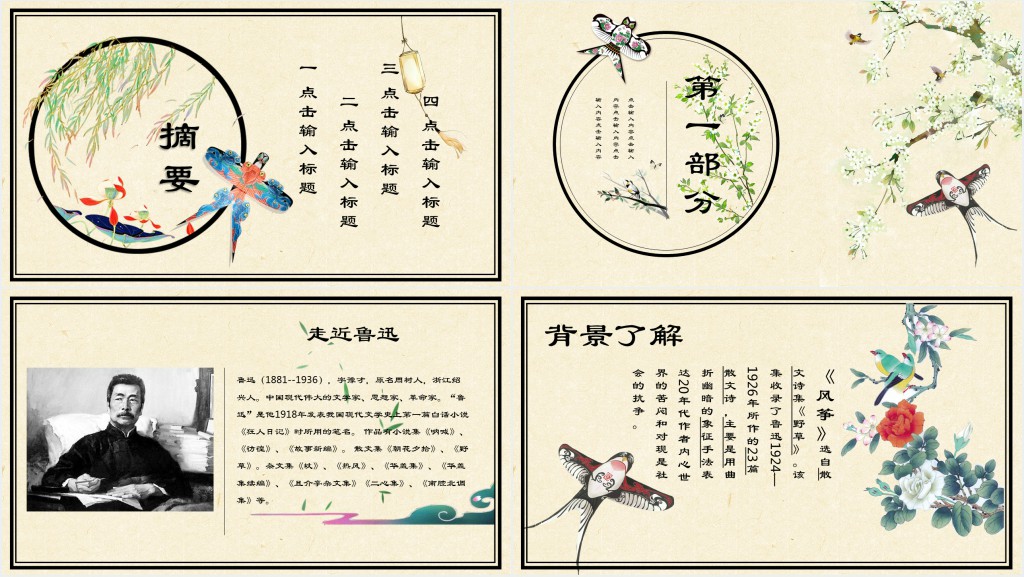 摘要
一 点击输入标题
二 点击输入标题
三 点击输入标题
四 点击输入标题
第一部分
点击输入内容点击输入
内容点击输入内容点击
输入内容点击输入内容
走近鲁迅
鲁迅（1881--1936），字豫才，原名周树人，浙江绍
兴人。中国现代伟大的文学家、思想家、革命家。“鲁
迅”是他1918年发表我国现代文学史上第一篇白话小说
《狂人日记》时所用的笔名。 作品有小说集《呐喊》、
《彷徨》、《故事新编》。 散文集《朝花夕拾》、《野
草》。杂文集《坟》、《热风》、《华盖集》、《华盖
集续编》、《且介亭杂文集》《二心集》、《南腔北调
集》等。
背景了解
《风筝》选自散
文诗集《野草》。该
集收录了鲁迅1924—
1926年所作的23篇
散文诗，主要是用曲
折幽暗的象征手法表
达20年代作者内心世
界的苦闷和对现是社
会的抗争。